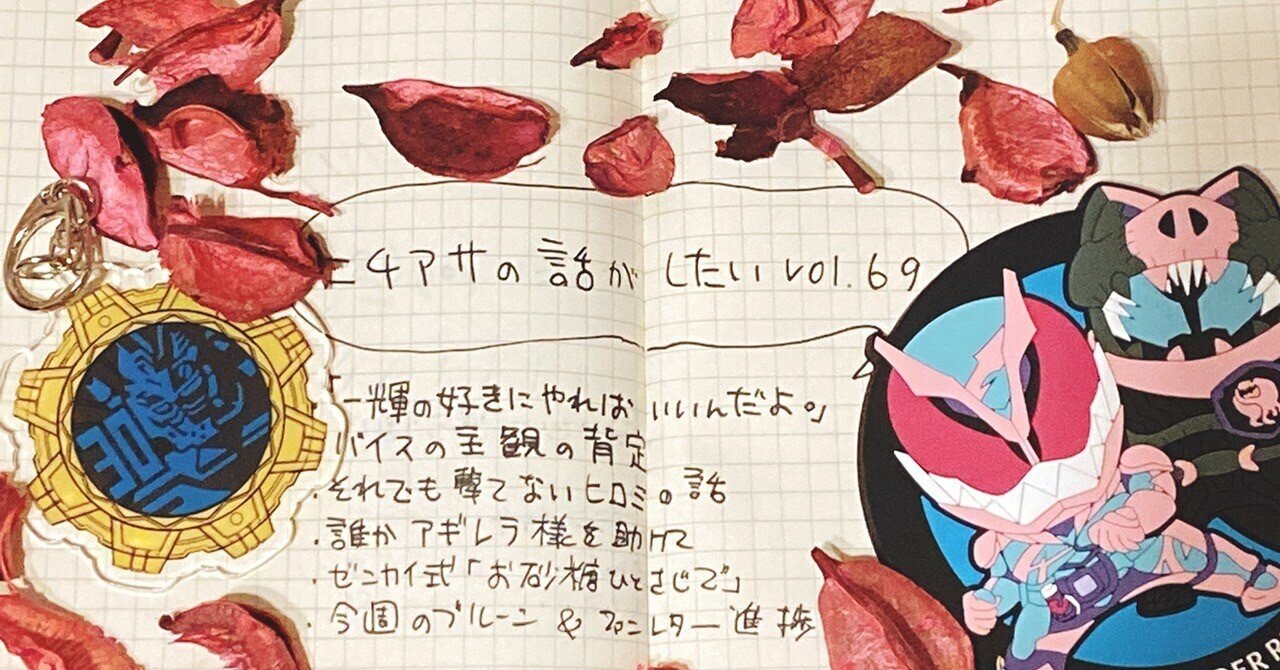 ニチアサの話がしたいvol.69
「一輝の好きにやればいいんだよ。」
バイスの主観の肯定
・それでも撃てないヒロミの話
・誰かアギレラ様を助けて
・ゼンカイ式「お砂糖ひとさじで」
・今週のブルーン&ファンレター進捗